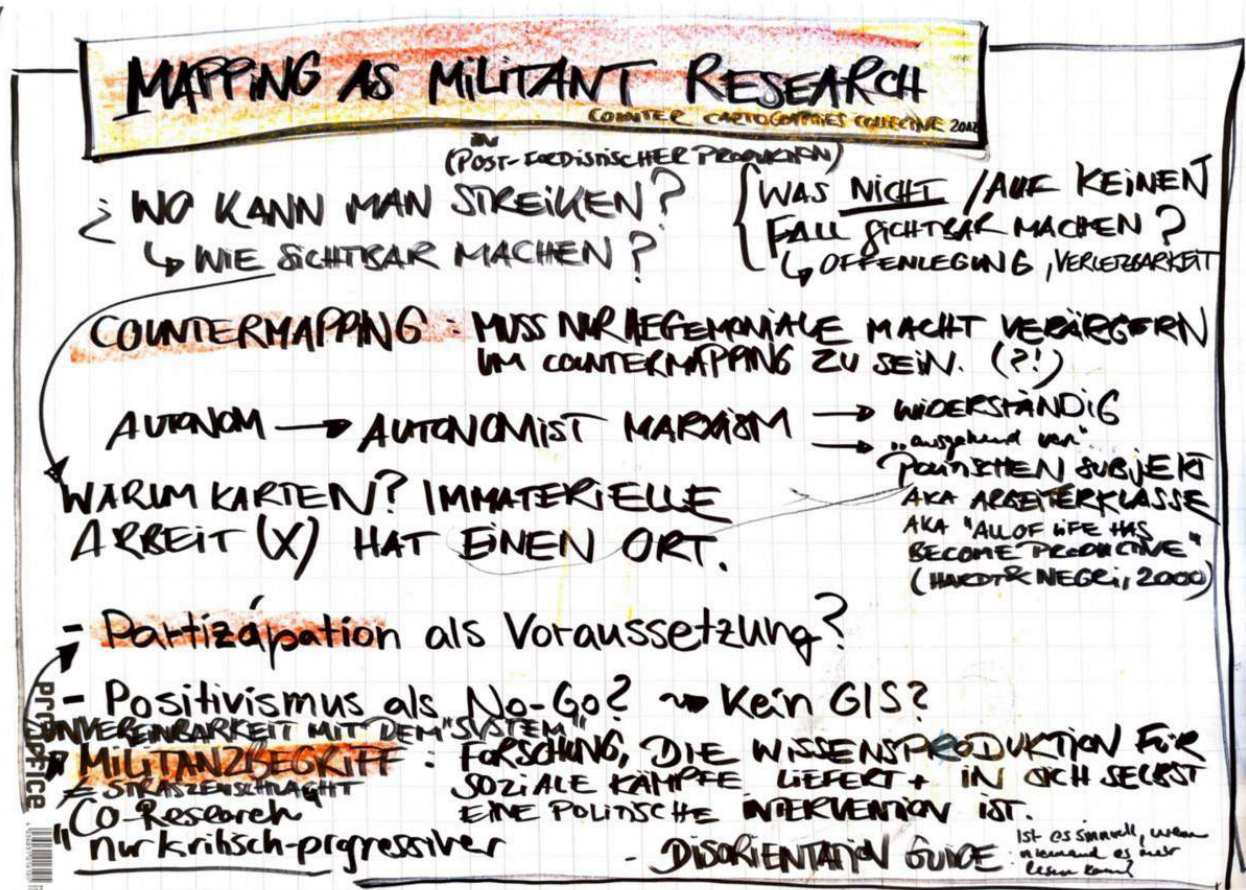 MAPPING AS MILITANT RESEARCH
COUNTER CARTOGRAPHIES COLLECTIVE 2012
in
(POST-FORDISTISCHER PRODUKTION)
¿ WO KANN MAN STREIKEN?
↳ WIE SICHTBAR MACHEN?
WAS NICHT / AUF KEINEN
FALL SICHTBAR MACHEN?
↳ OFFENLEGUNG, VERLETZBARKEIT
COUNTERMAPPING: MUSS NUR HEGEMONIALE MACHT VERÄRGERN
UM COUNTERMAPPING ZU SEIN. (?!)
AUTONOM → AUTONOMIST MARXISM → WIDERSTÄNDIG
→ "ausgehend von"
POLITISCHEN SUBJEKT
AKA ARBEITERKLASSE
AKA "ALL OF LIFE HAS
BECOME PRODUCTIVE"
(HARDT & NEGRI, 2000)
WARUM KARTEN? IMMATERIELLE
ARBEIT (X) HAT EINEN ORT.
- Partizápation als Voraussetzung?
- Positivismus als No-Go? ~> Kein GIS?
UNVEREINBARKEIT MIT DEM "SYSTEM"
MILITANZBEGRIFF: FORSCHUNG, DIE WISSENSPRODUKTION FÜR
≠ STRASZENSCHLACHT
SOZIALE KÄMPFE LIEFERT + IN SICH SELBST
EINE POLITISCHE INTERVENTION IST.
"Co-Research"
nur kritisch-progressiver
- DISORIENTATION GUIDE
Ist es sinnvoll, wenn
niemand es mehr
lesen kann?
office